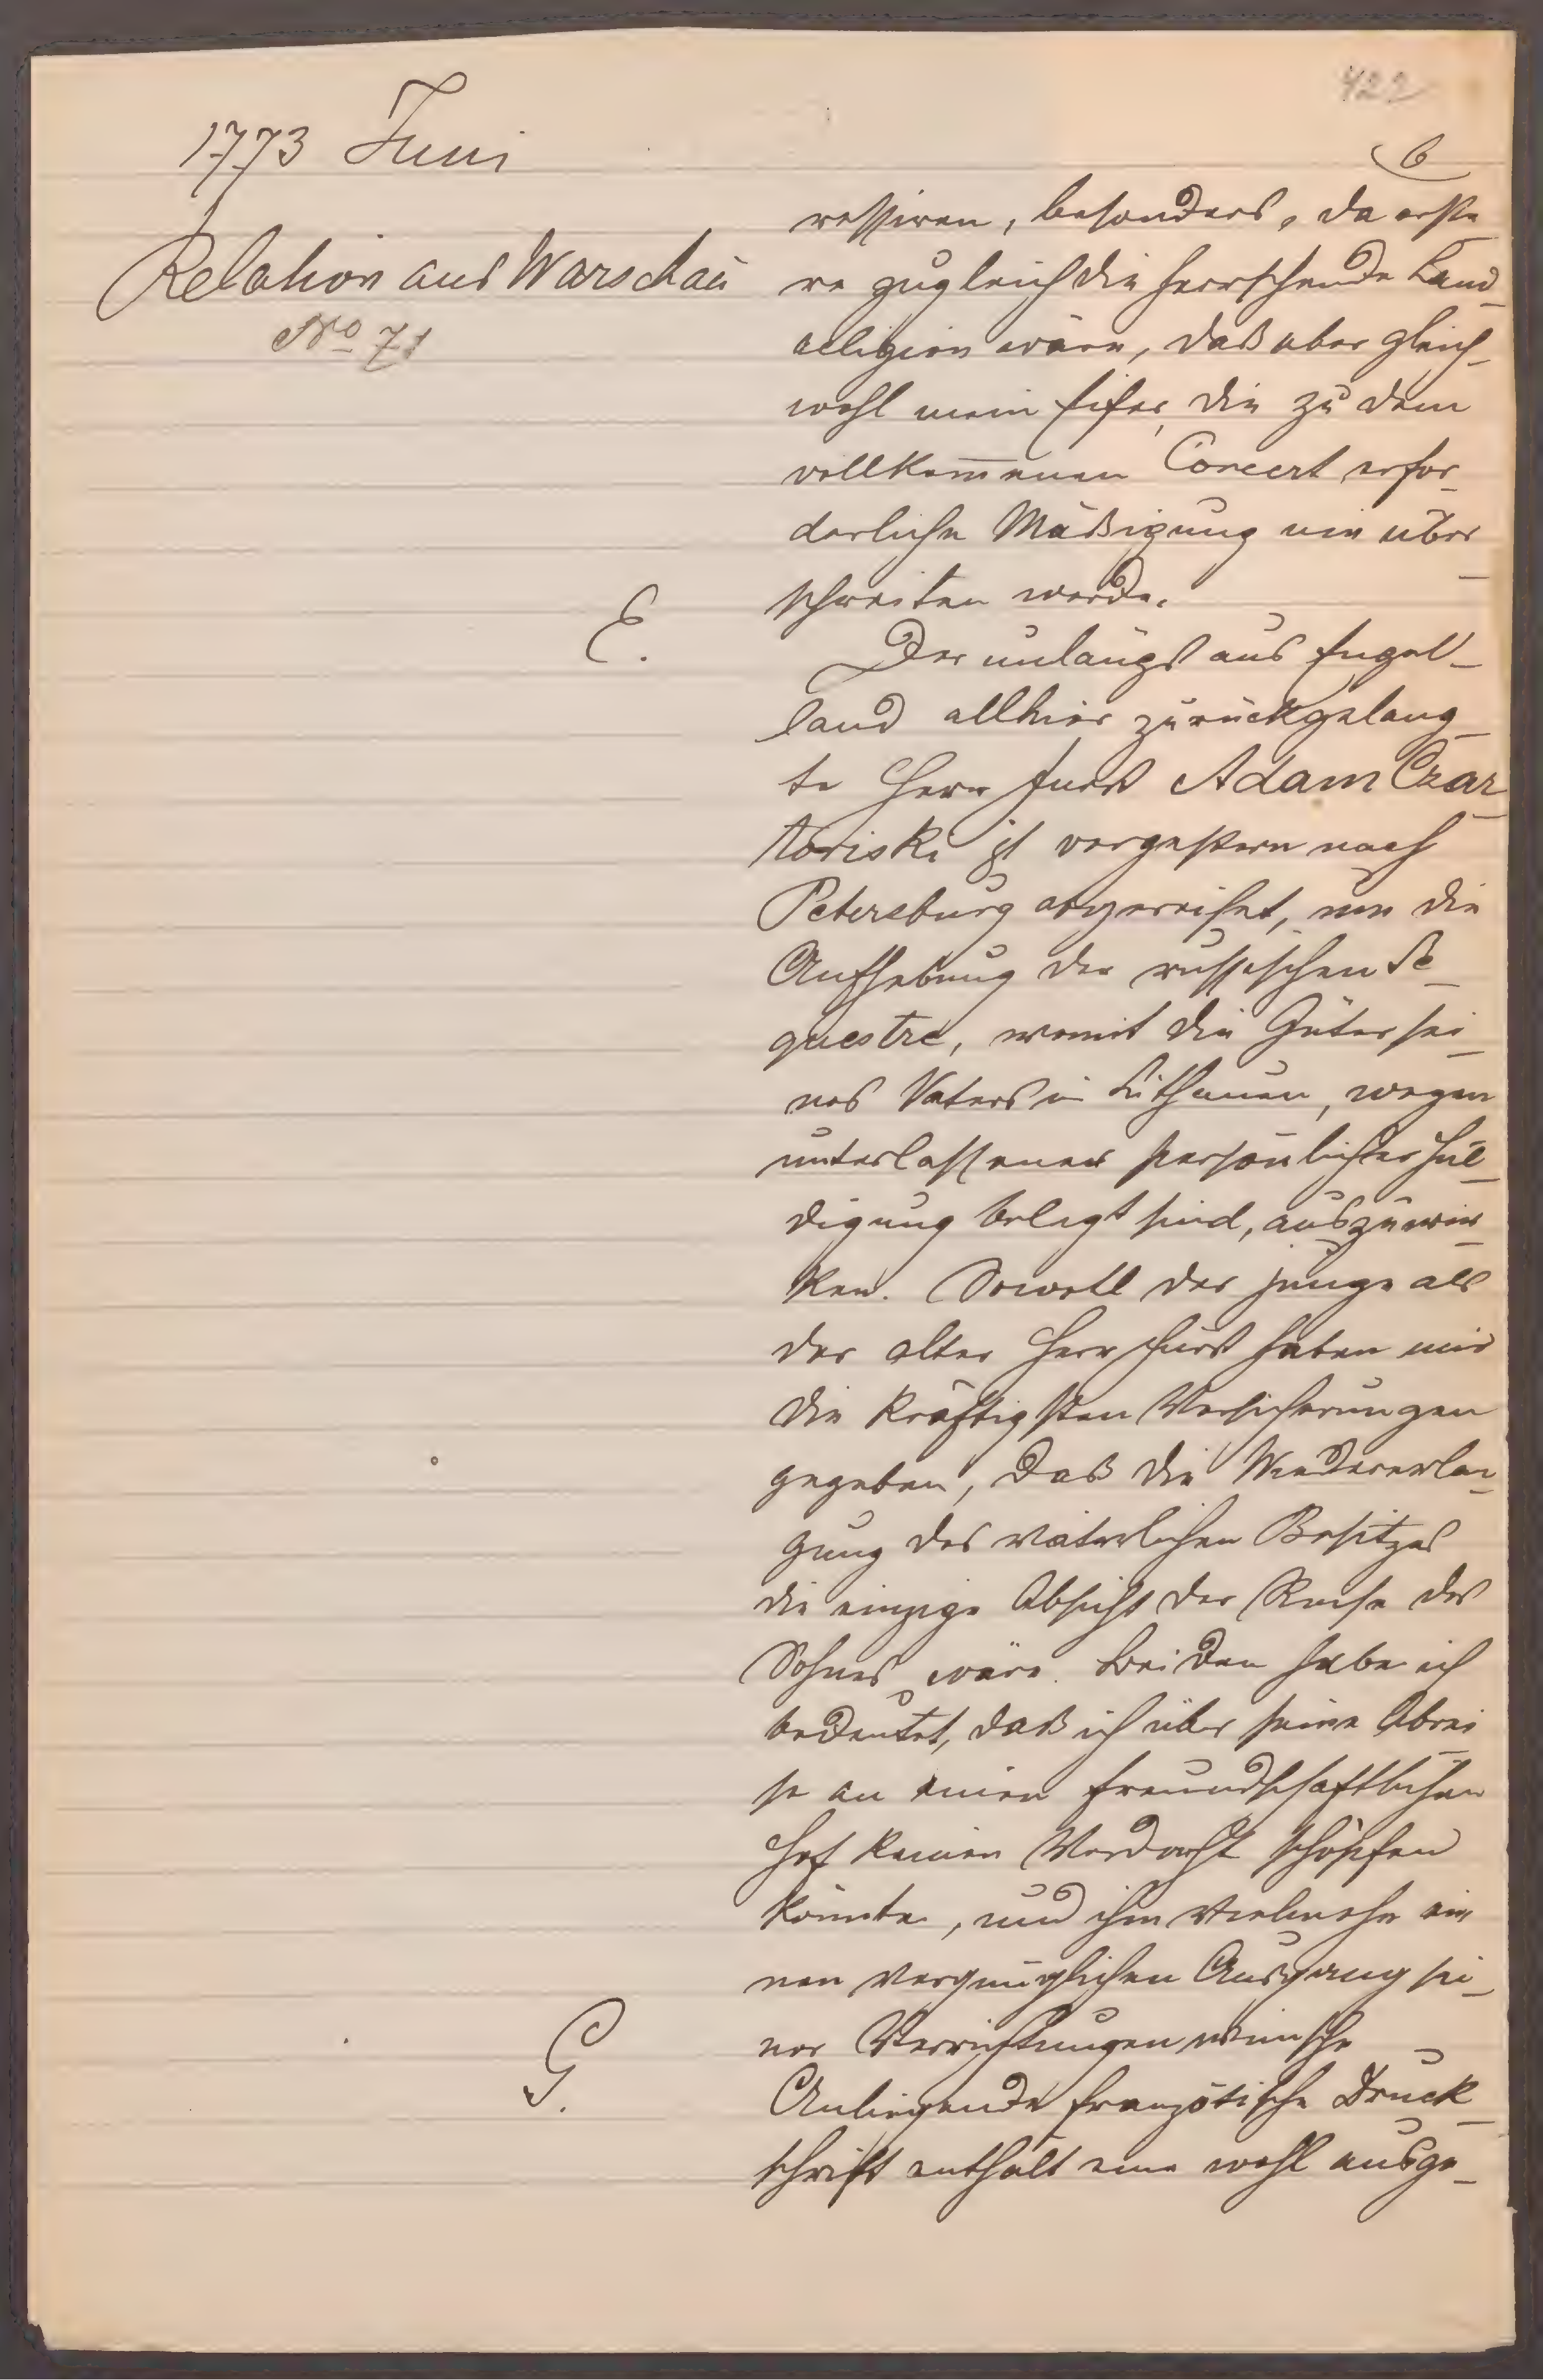 422
6
1773 Juni
Relation aus Warschau
No 71
ressiren, besonders, da erste
re zugleich die herrschende Land
religion wäre, daß aber gleich
wohl mein Eifer, die zu dem
vollkom̅enen Concert erfor
derliche Mäßigung nie über
schreiten werde.
E.
Der unlängst aus Engel
land allhier zurückgelang
te Herr Fürst Adam Czar
toriski ist vorgestern nach
Petersburg abgereiset, um die
Aufhebung der russischen Se
questre, womit die Güter sei
nes Vaters in Lithauen, wegen
unterlassener persönlicher Hul
digung belegt sind, auszuwir
ken. Sowohl der junge als
der alter Herr Fürst haben mir
die kräftigsten Versicherungen
gegeben, daß die Wiedererlan
gung des väterlichen Besitzes
die einzige Absicht der Reise des
Sohnes wäre. Beiden habe ich
bedeutet, daß ich über seine Abrei
se an einen freundschaftlichen
Hof keinen Verdacht schöpfen
könnte, und ihm vielmehr ei
nen vergnüglichen Ausgang sei
ner Verrichtungen wünsche
G.
Anliegende französische Druck
schrift enthält eine wohl ausge